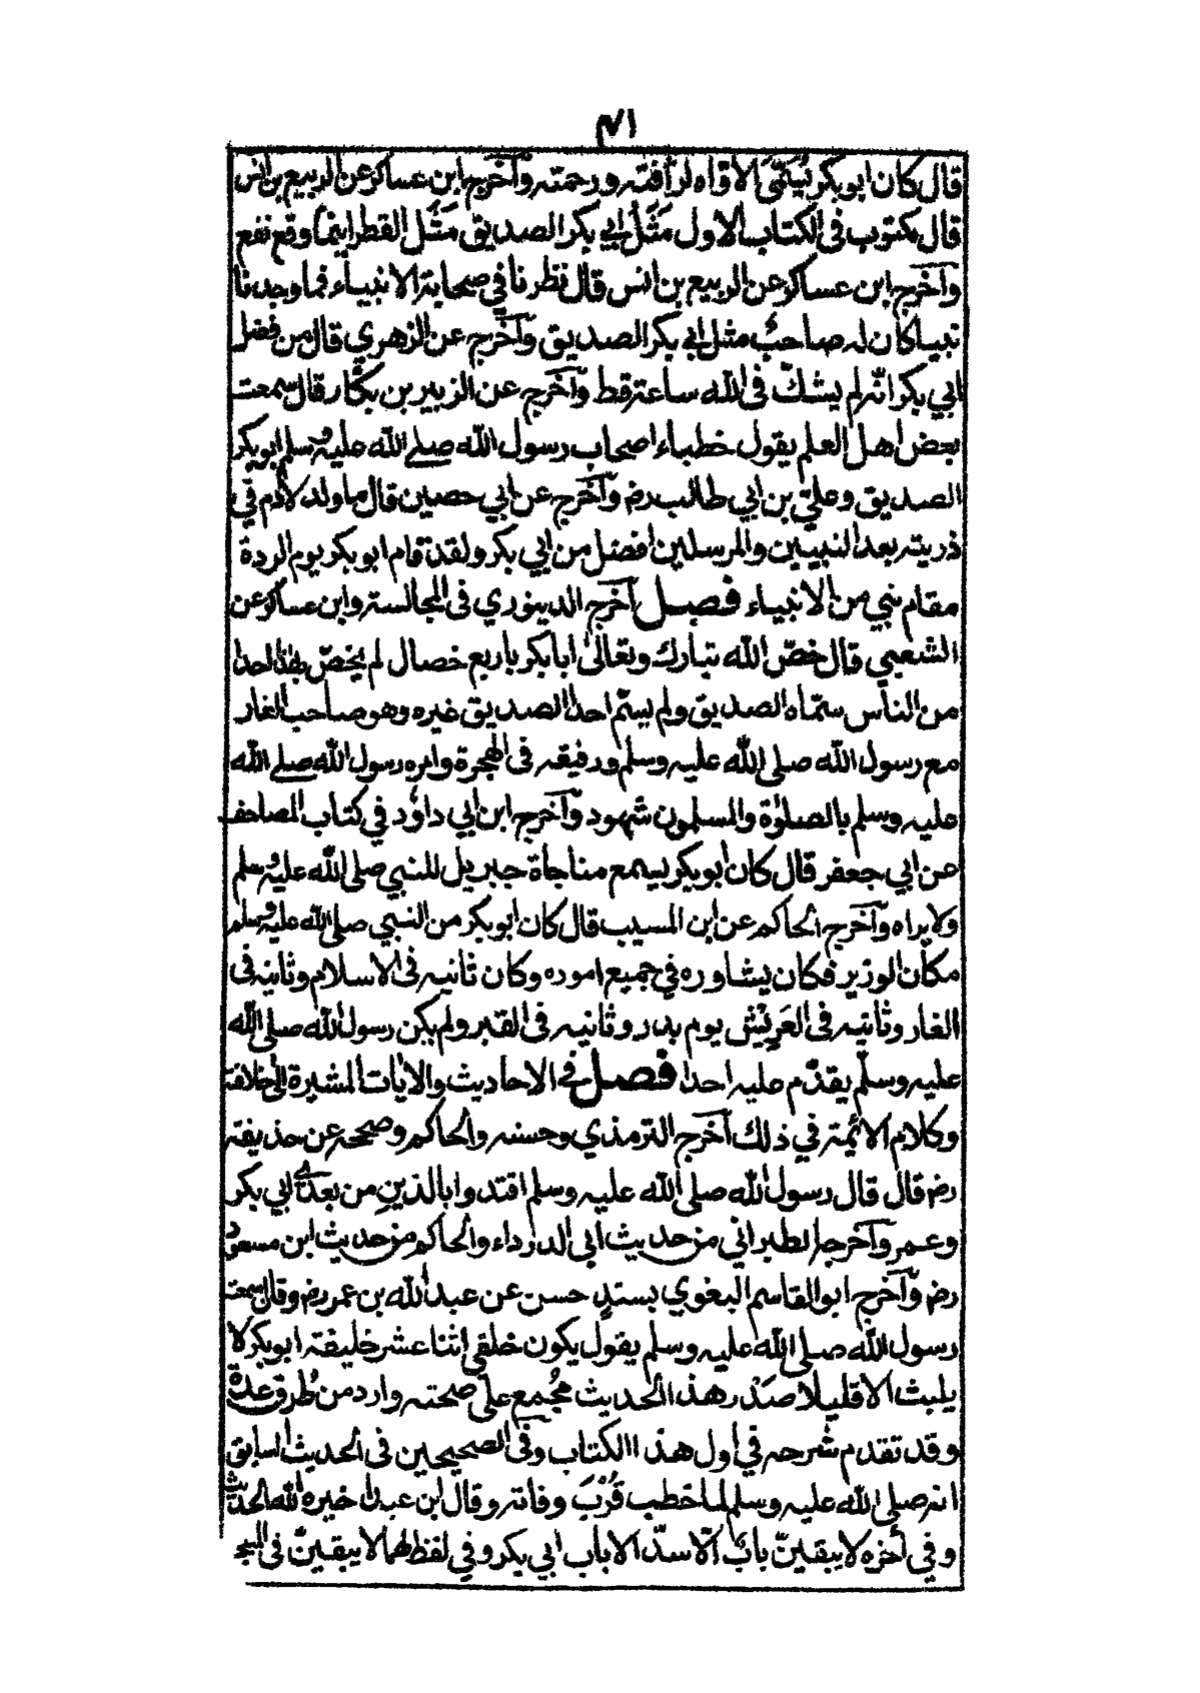 ٤١
قال كان ابو بكر يُسَمّىَ الاوّاه لرأفته ورحمته وآخرج ابن عساكر عن الربيع بن انس
قال مكتوب فى الكتاب الاول مَثَل ابي بكر الصديق مَثَل القطر اينما وقع نفع
وآخرج ابن عساكر عن الربيع بن انس قال نظرنا في صحابة الانبياء فما وجدنا
نبيا كان له صاحبٌ مثل ابي بكر الصديق وآخرج عن الزهري قال من فضل
ابي بكر انّه لم يشكّ فى الله ساعة قط وآخرج عن الزبير بن بكّار قال سمعت
بعض اهل العلم يقول خطباء اصحاب رسول الله صلى الله عليه وسلم ابو بكر
الصديق وعلي بن ابي طالب رضـ وآخرج عن ابي حصين قال ما ولد لآدم في
ذريته بعد النبيين والمرسلين افضل من ابي بكر ولقد قام ابو بكر يوم الردة
مقام نبي من الانبياء فصل آخرج الدينوري فى المجالسة وابن عساكر عن
الشعبي قال خصّ الله تبارك وتعالى ابا بكر باربع خصال لم يخصّ بها احدا
من الناس سمّاه الصديق ولم يسمّ احدا الصديق غيره وهو صاحب الغار
مع رسول الله صلى الله عليه وسلم ورفيقه فى الهجرة وامره رسول الله صلى الله
عليه وسلم بالصلوٰة والمسلمون شهود وآخرج ابن ابي داؤد في كتاب المصاحف
عن ابي جعفر قال كان ابو بكر يسمع مناجاة جبريل للنبي صلى الله عليه وسلم
ولا يراه وآخرج الحاكم عن ابن المسيب قال كان ابو بكر من النبي صلى الله عليه وسلم
مكان الوزير فكان يشاوره في جميع اموره وكان ثانيه فى الاسلام وثانيه فى
الغار وثانيه فى العَرِيْش يوم بدر وثانيه فى القبر ولم يكن رسول الله صلى الله
عليه وسلّم يقدّم عليه احدا فصل في الاحاديث والايات المشيرة الى خلافته
وكلام الائمة في ذلك آخرج الترمذي وحسنه والحاكم وصححه عن حذيفة
رضـ قال قال رسول الله صلى الله عليه وسلم اقتدوا بالذينِ من بعدي ابي بكر
وعمر وآخرجه الطبراني من حديث ابى الدرداء والحاكم من حديث ابن مسعود
رضـ وآخرج ابو القاسم البغوي بسندٍ حسن عن عبد الله بن عمر رضـ وقال سمعت
رسول الله صلى الله عليه وسلم يقول يكون خلفي اثنا عشر خليفة ابو بكر لا
يلبث الا قليلا صَدْر هذا الحديث مُجْمع على صحته وارد من طُرق عدة
وقد تقدم شرحه في اول هذا الكتاب وفى الصحيحين فى الحديث السابق
انه صلى الله عليه وسلم لما خطب قُرْبَ وفاته وقال ان عبدا خيره الله الحديث
وفي أخره لا يبقينّ بابٌ اّلا سدّ الا باب ابي بكر وفي لفظ لهما لا يبقينّ فى المسجد